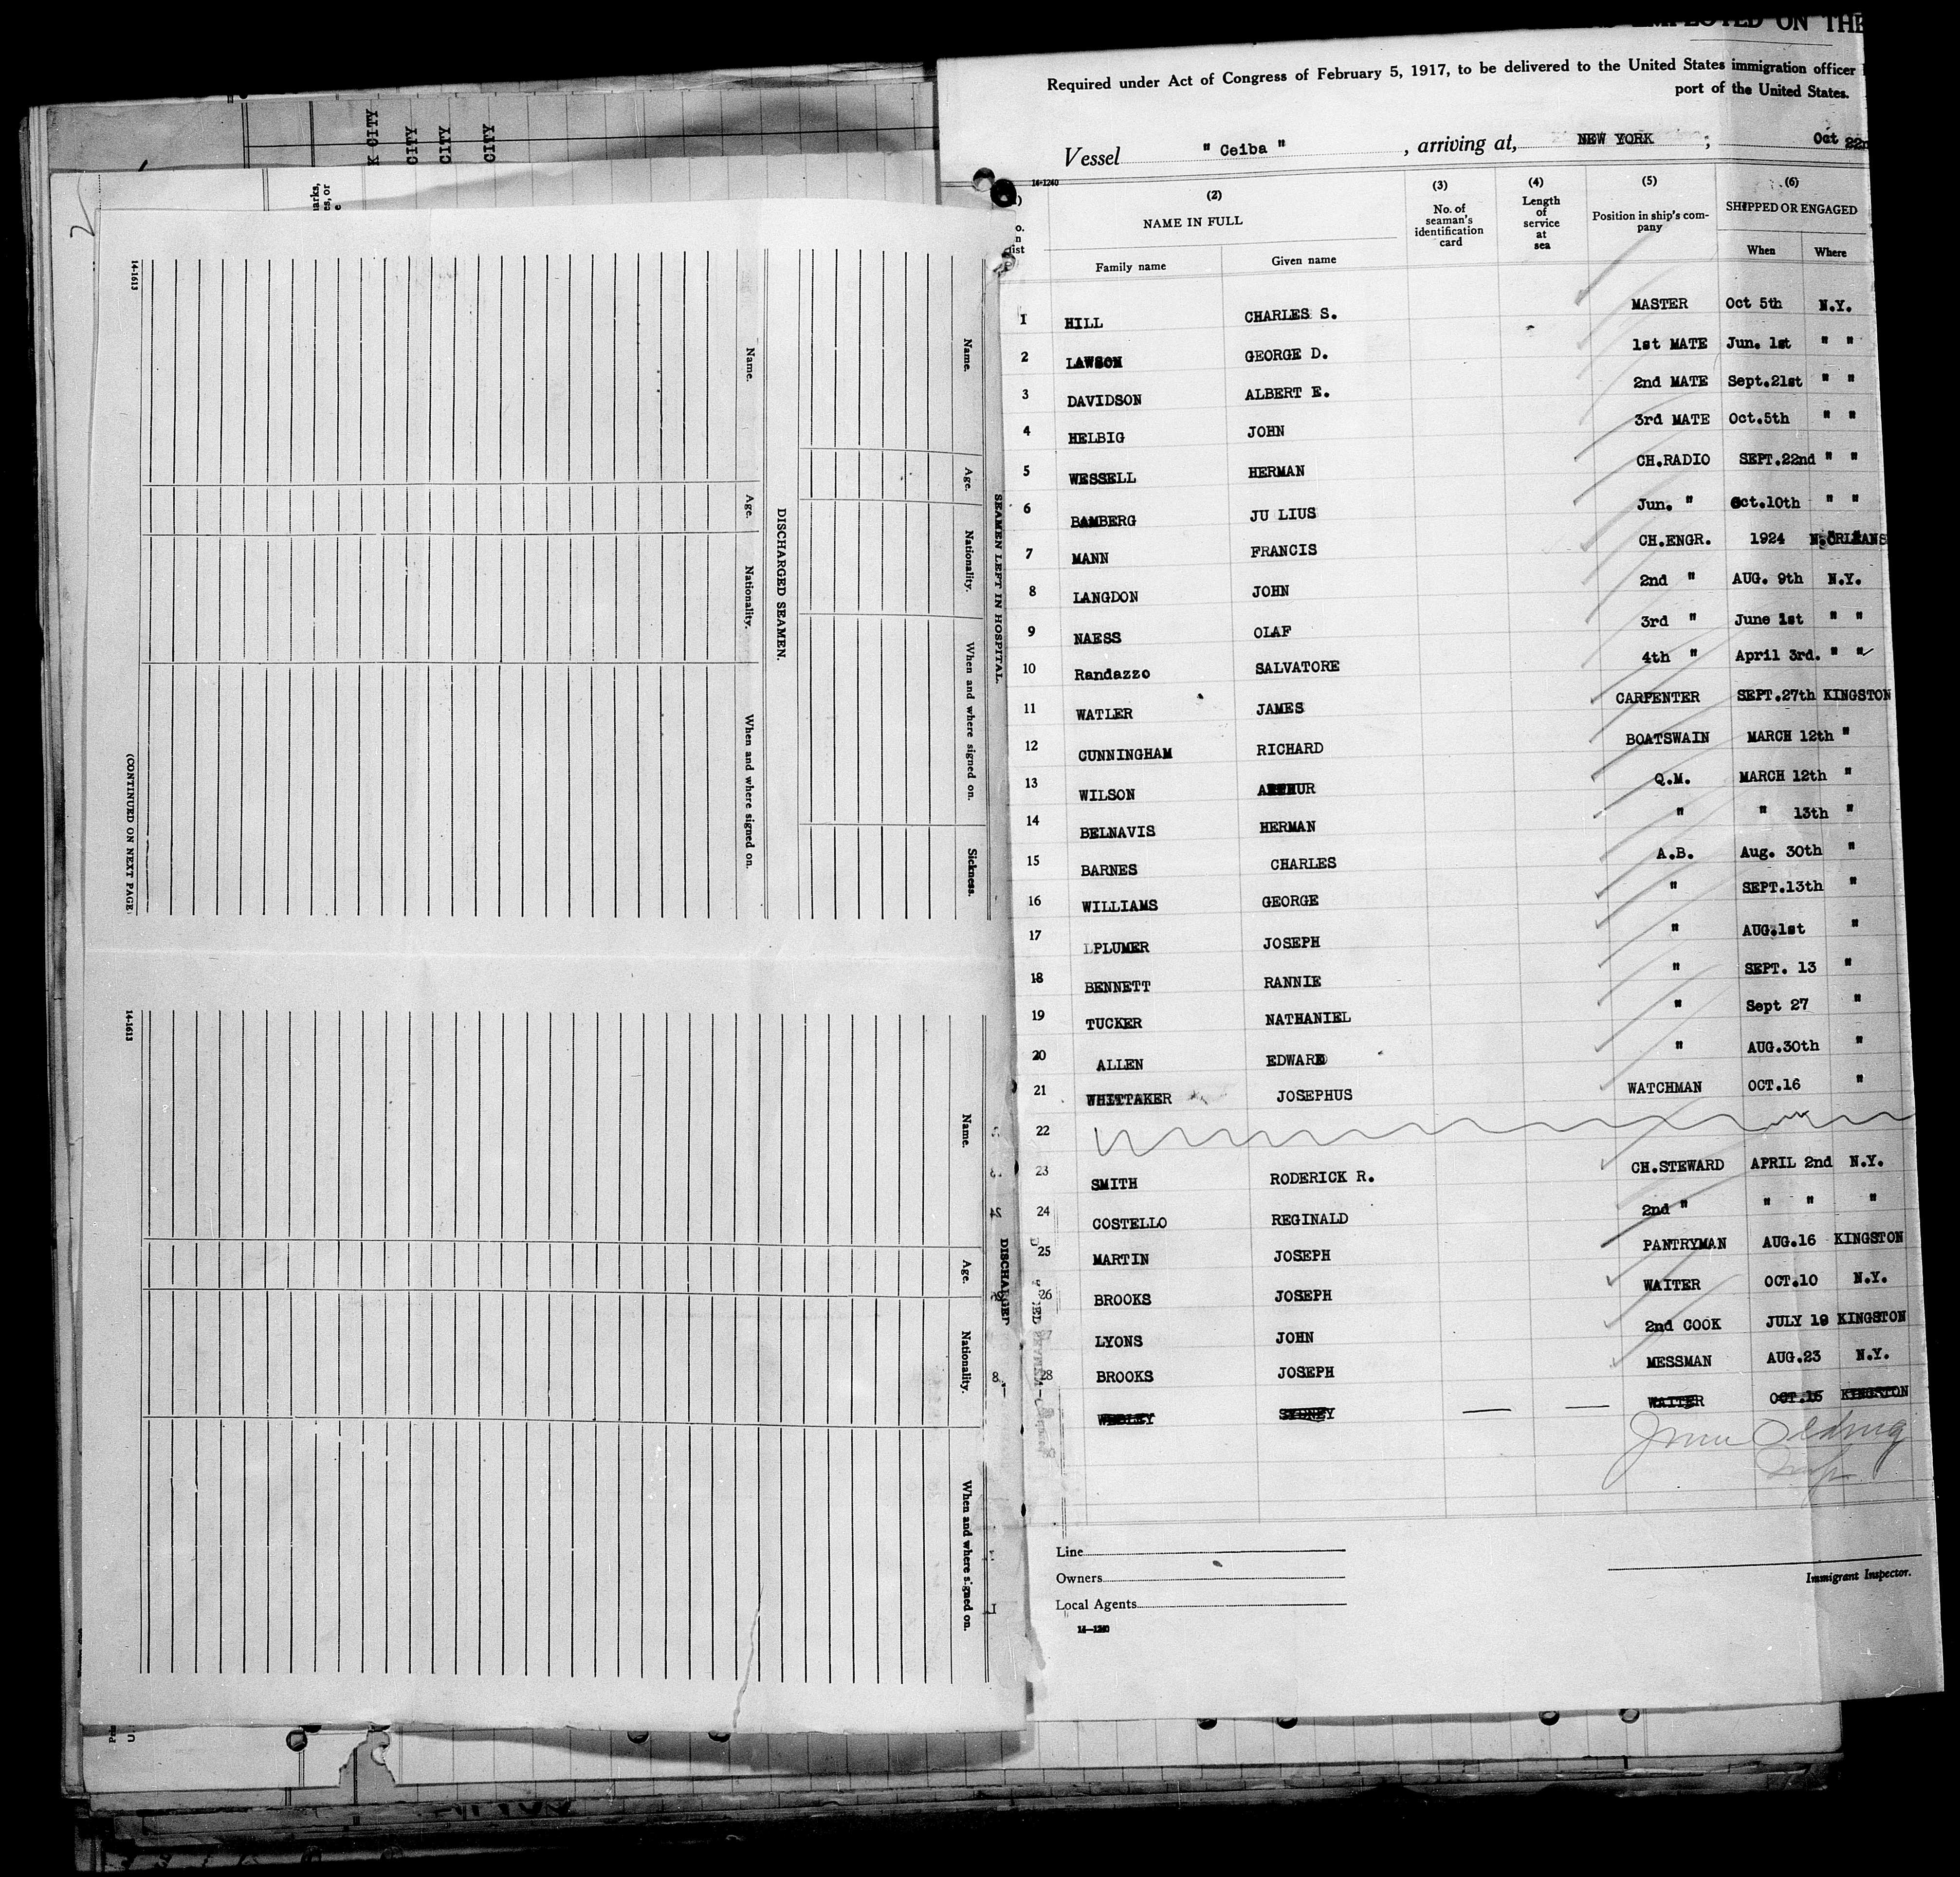 EMPLOYED ON THE
Required under Act of Congress of February 5, 1917, to be delivered to the United States immigration officer
port of the United States.
Vessel " Ceiba " , arriving at, NEW YORK ; Oct 22n
14-1240
(2) (3) (4) (5) (6)
NAME IN FULL No. of seaman's identification card Length of service at sea Position in ship's company SHIPPED OR ENGAGED
Family name Given name When Where
1 HILL CHARLES S. MASTER Oct 5th N.Y.
2 LAWSON GEORGE D. 1st MATE Jun. 1st " "
3 DAVIDSON ALBERT E. 2nd MATE Sept.21st " "
4 HELBIG JOHN 3rd MATE Oct.5th " "
5 WESSELL HERMAN CH.RADIO SEPT.22nd " "
6 BAMBERG JU LIUS Jun. " Oct.10th " "
7 MANN FRANCIS CH.ENGR. 1924 N.ORLEANS
8 LANGDON JOHN 2nd " AUG. 9th N.Y.
9 NAESS OLAF 3rd " June 1st " "
10 Randazzo SALVATORE 4th " April 3rd. " "
11 WATLER JAMES CARPENTER SEPT.27th KINGSTON
12 CUNNINGHAM RICHARD BOATSWAIN MARCH 12th "
13 WILSON ARTHUR Q.M. MARCH 12th "
14 BELNAVIS HERMAN " " 13th "
15 BARNES CHARLES A.B. Aug. 30th "
16 WILLIAMS GEORGE " SEPT.13th "
17 PLUMER JOSEPH " AUG.1st "
18 BENNETT RANNIE " SEPT. 13 "
19 TUCKER NATHANIEL " Sept 27 "
20 ALLEN EDWARD " AUG.30th "
21 WHITTAKER JOSEPHUS WATCHMAN OCT.16 "
22
23 SMITH RODERICK R. CH.STEWARD APRIL 2nd N.Y.
24 COSTELLO REGINALD 2nd " " " "
25 MARTIN JOSEPH PANTRYMAN AUG.16 KINGSTON
26 BROOKS JOSEPH WAITER OCT.10 N.Y.
7 LYONS JOHN 2nd COOK JULY 19 KINGSTON
28 BROOKS JOSEPH MESSMAN AUG.23 N.Y.
WESLEY SYDNEY WAITER OCT.15 KINGSTON
Line
Owners
Local Agents
14—1240
Immigrant Inspector.
K CITY
CITY
CITY
CITY
SEAMEN LEFT IN HOSPITAL.
Name. Age. Nationality. When and where signed on. Sickness.
DISCHARGED SEAMEN.
Name. Age. Nationality. When and where signed on.
14-1613
(CONTINUED ON NEXT PAGE)
DISCHARGED
Name. Age. Nationality. When and where signed on.
14-1613